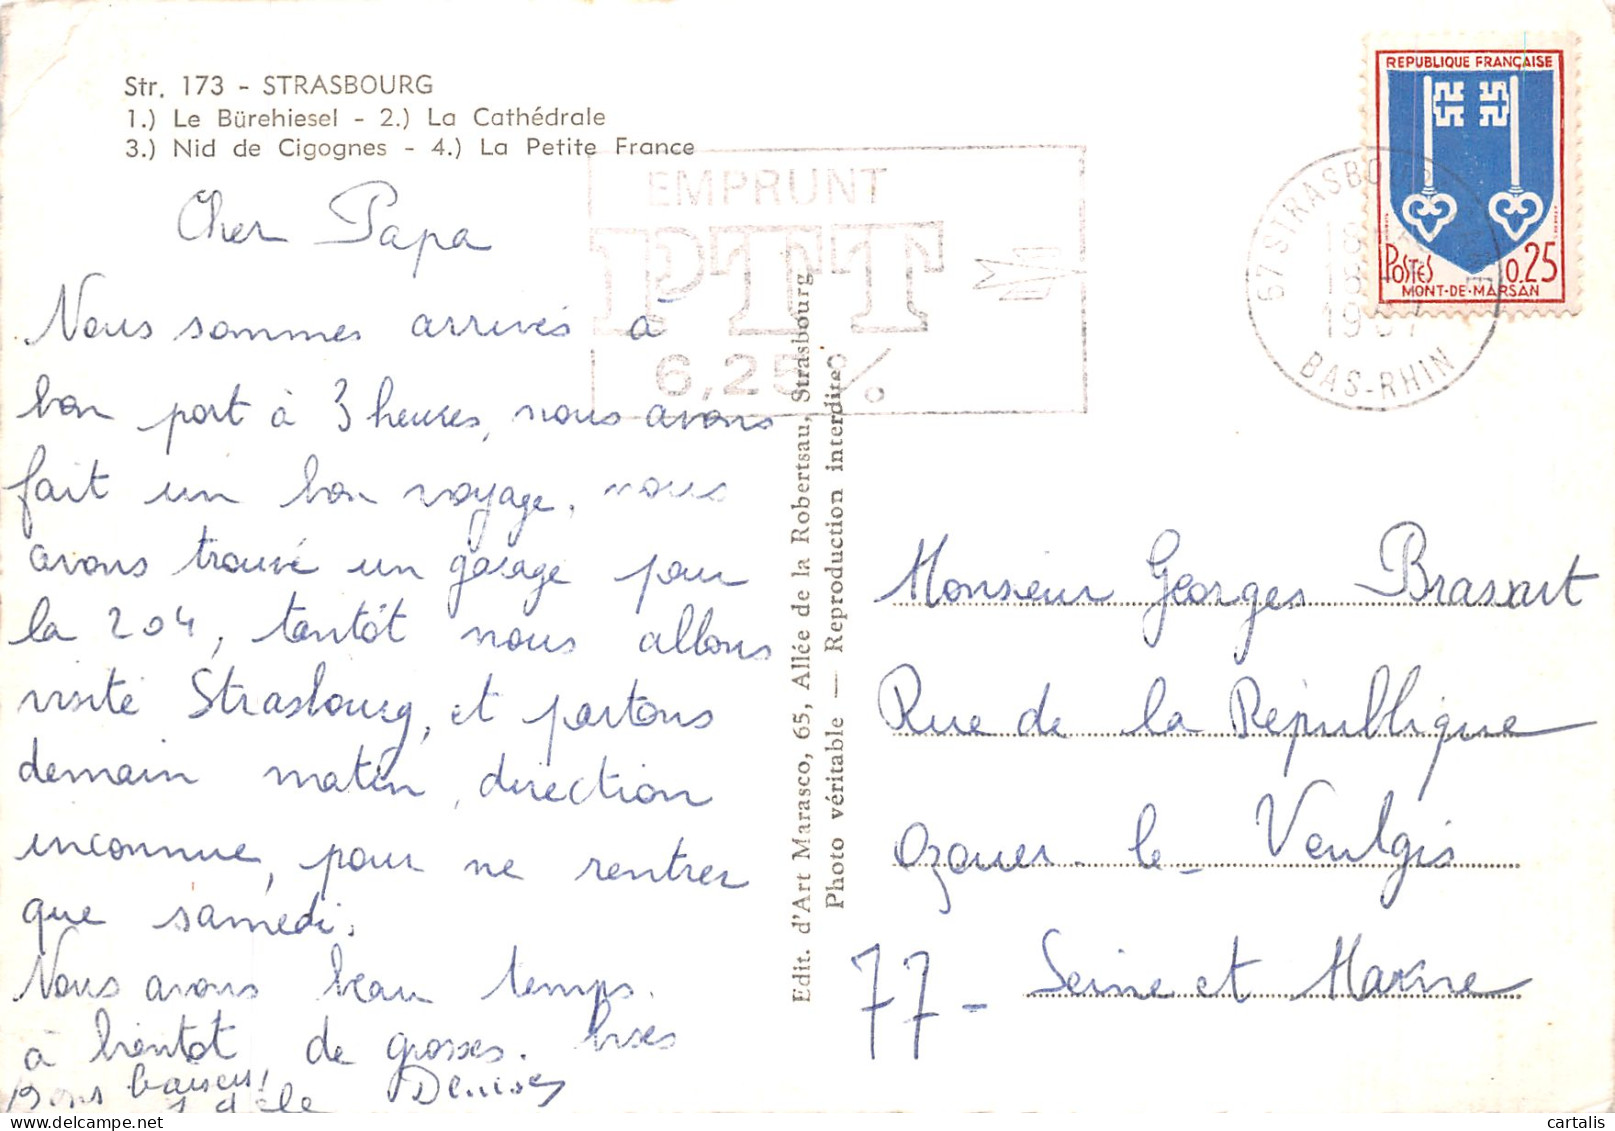 Str. 173 - STRASBOURG
1.) Le Bürehiesel - 2.) La Cathédrale
3.) Nid de Cigognes - 4.) La Petite France
Cher Papa
Nous sommes arrivés à
bon port à 3 heures, nous avons
fait un bon voyage, nous
avons trouvé un garage pour
la 204, tantôt nous allons
visité Strasbourg, et partons
demain matin, direction
inconnue, pour ne rentrer
que samedi.
Nous avons beau temps.
à bientôt de grosses. bises
Bons baisers
Denise
Edit. d'Art Marasco, 65, Allée de la Robertsau, Strasbourg
Photo véritable — Reproduction interdite
EMPRUNT
PTT
6,25%
REPUBLIQUE FRANÇAISE
POSTES 0.25
MONT-DE-MARSAN
67 STRASBOURG
18
18
1967
BAS-RHIN
Monsieur Georges Brassart
Rue de la République
Ozouer-le-Voulgis
77 - Seine et Marne
cartalis